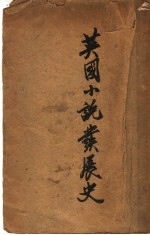 英國小説發展史